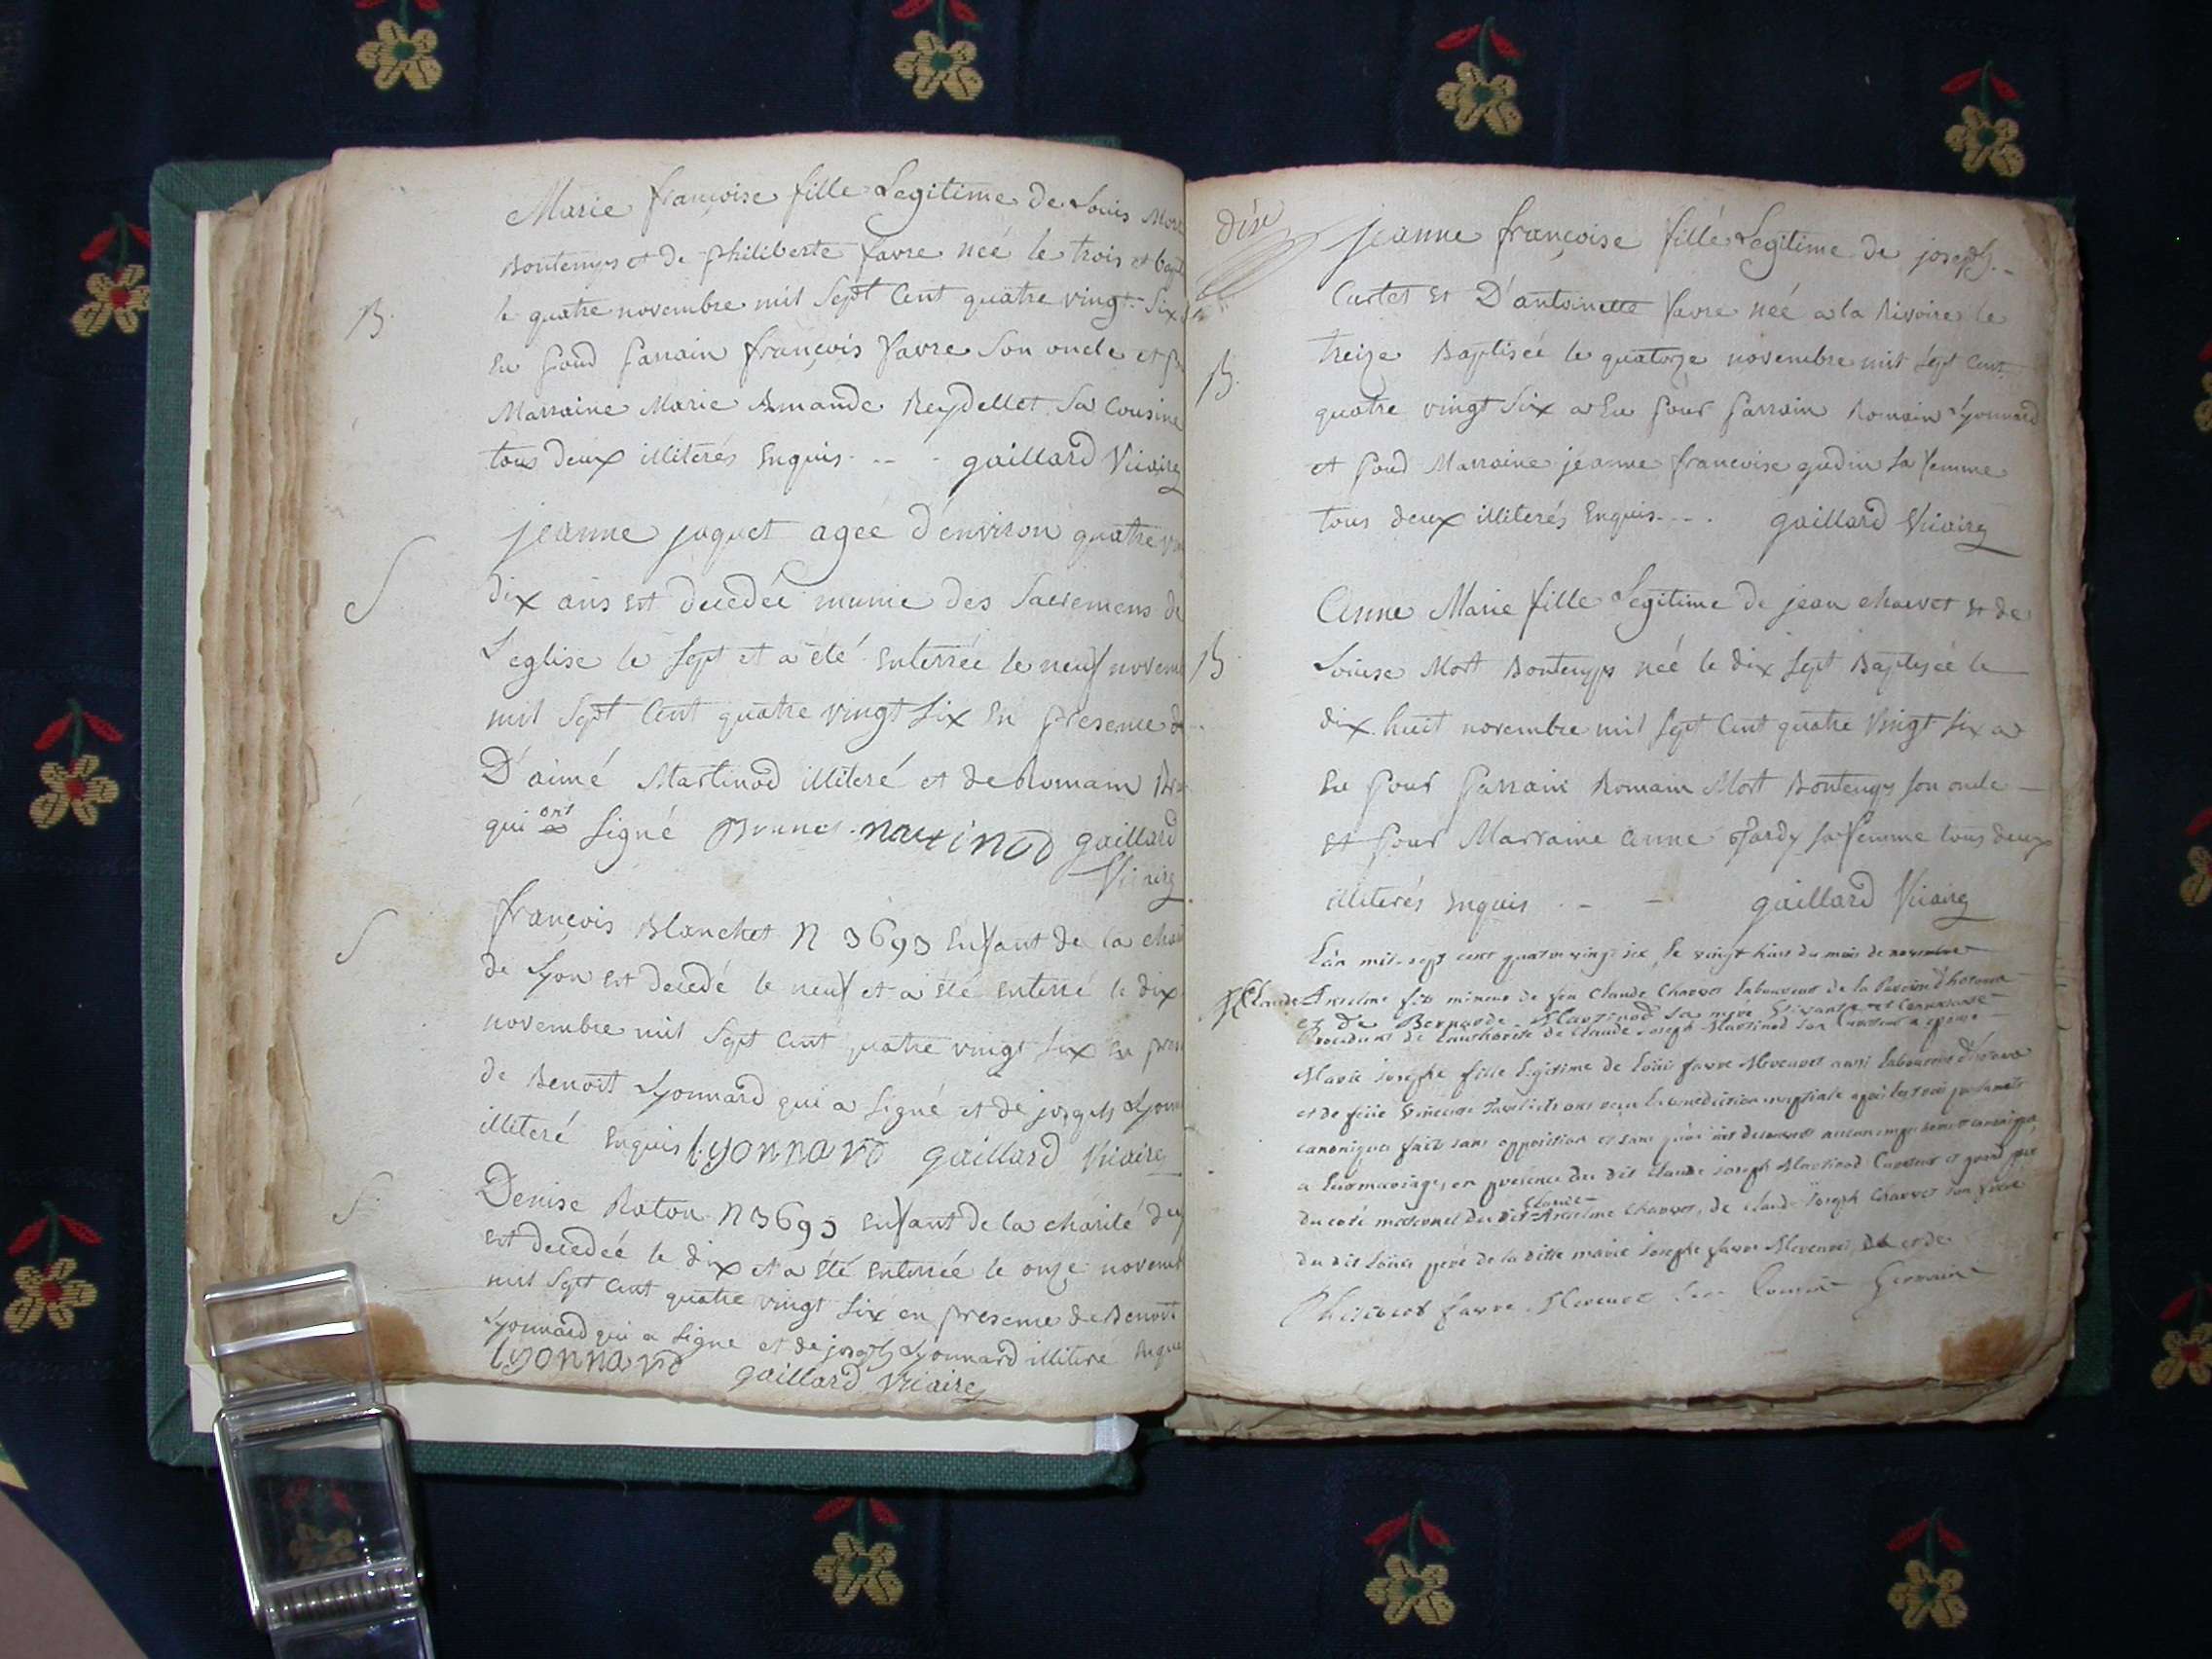 Marie françoise fille Legitime de Louis Mort
Bontemps et de philiberte favre neé le trois et bapt
B.
le quatre novembre mil Sept Cent quatre vingt Six
Eu pour parrain françois favre Son oncle et
Marraine Marie Amande Reydellet Sa Cousine
tous deux illiterés Enquis. -- - gaillard Vicaire
S
jeanne jaquet ageé d'environ quatre
dix ans est decedeé munie des Sacremens de
L'eglise le Sept et a été Enterrée le neuf novem
mil Sept Cent quatre vingt Six En presence
D'aimé Martinod illiteré et de Romain
qui ont Signé Brunet martinod gaillard
Vicaire
S
françois Blanchet N 3693 Enfant de la cha
de Lyon est decedé le neuf et a été enterré le dix
novembre mil Sept Cent quatre vingt Six En pres
de Benoit Lyonnard qui a Signé et de joseph Lyonn
illiteré Enquis lyonnard gaillard Vicaire
S.
Denise Raton N 3695 Enfant de la charité de
est decedeé le dix et a été Enterrée le onze novemb
mil Sept Cent quatre vingt Six en presence de Benoit
Lyonnard qui a Signe et de joseph Lyonnard illitere Enque
lyonnard gaillard Vicaire
dix
jeanne françoise fille Legitime de joseph -
Cartet Et D'antoinette favre neé a la Rivoire le
B.
treize Baptisée le quatorze novembre mil Sept Cent
quatre vingt Six a Eu pour parrain Romain Lyonnard
et pour Marraine jeanne francoise gudin Sa femme
tous deux illiterés Enquis. - - . gaillard Vicaire
Anne Marie fille Legitime de jean charvet Et de
B
Louise Mort Bontemps neé le dix Sept Baptiseé le
dix huit novembre mil Sept Cent quatre Vingt Six a
Eu pour parrain Romain Mort Bontemps Son oncle
Et pour Marraine Anne Sa femme tous deux
illiterés Enquis - - gaillard Vicaire
L'an mil sept cent quatre vingt six, le vingt huit du mois de novembre
Claude Anselme fils mineur de feu Claude Charvet laboureur de la
et de Bernarde Martinod Sa mère
de L'authorité de Claude Joseph Martinod Son Curateur a epousé
Marie Josephe fille Legitime de Loüis favre aussi laboureur
et de feüe ont reçu La benediction nuptiale après les trois
canoniques faits sans opposition et sans
a leur mariage, en présence du dit Claude Joseph Martinod Curateur et grand père
du coté maternel du dit Claude Anselme Charvet, de Claude Joseph Charvet Son frère
du dit Loüis père de la ditte marie Josephe favre et de
favre Germain